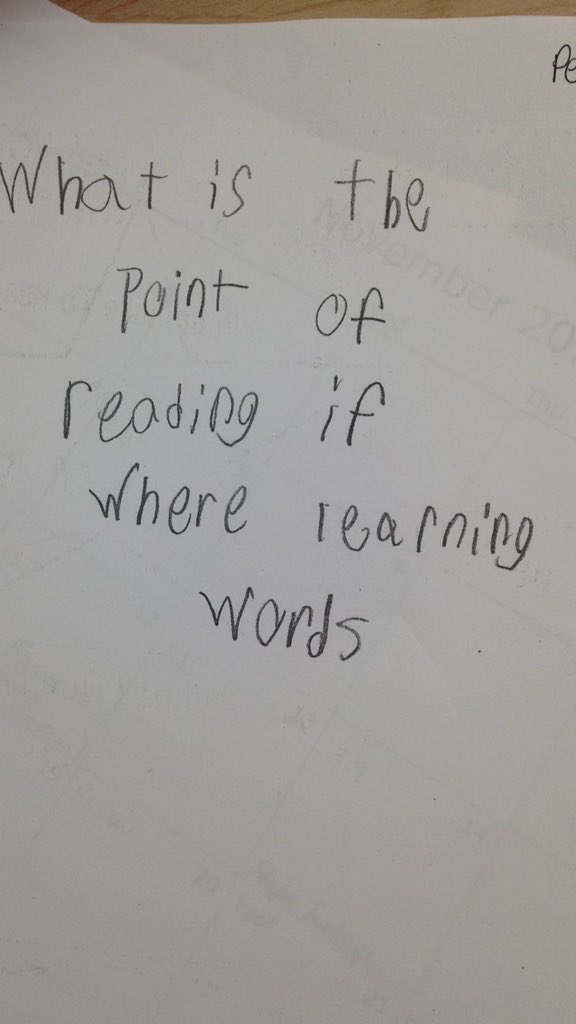 Pe
What is the
point of
reading if
where learning
words
November 20